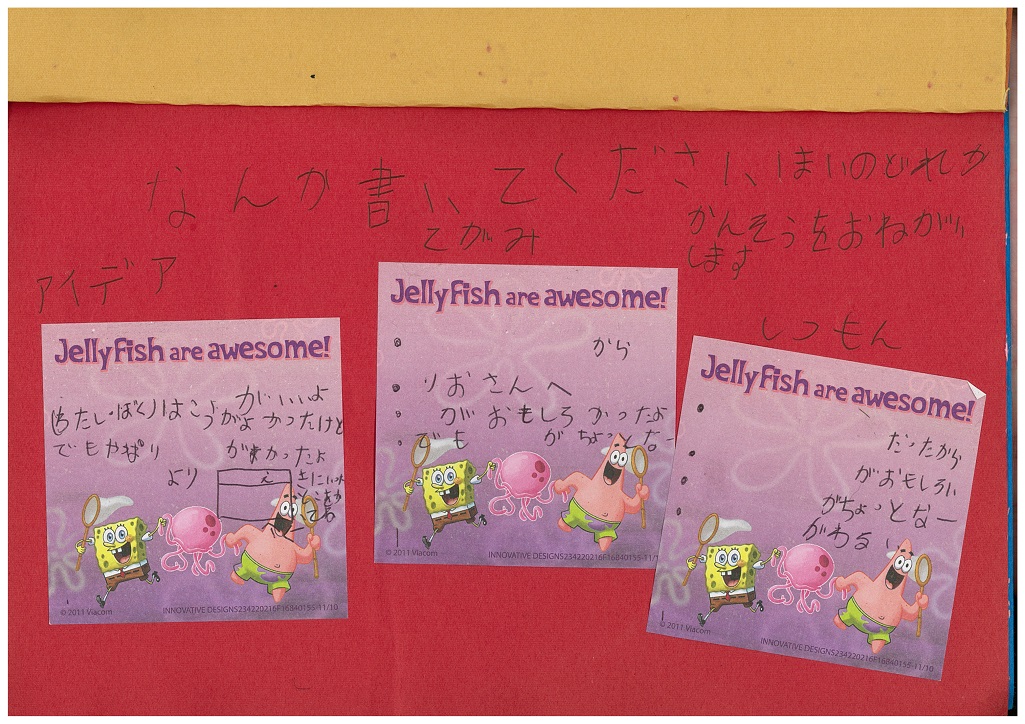 なんか書いてください、ほいのどれか
てがみ
かんそうをおねがい
します
アイデア
Jellyfish are awesome!
(わたし・ぼく)はこうがいいよ
がよかったけど
でもやぱり がよかったよ
より
え
© 2011 Viacom
INNOVATIVE DESIGNS234220216F16840155-11/10
Jellyfish are awesome!
から
りおさんへ
がおもしろかったよ
でも がちょっとなー
© 2011 Viacom
INNOVATIVE DESIGNS234220216F16840155-11/1
しつもん
Jellyfish are awesome!
だったから
がおもしろい
がちょっとなー
がわるい
© 2011 Viacom
INNOVATIVE DESIGNS234220216F16840155-11/10